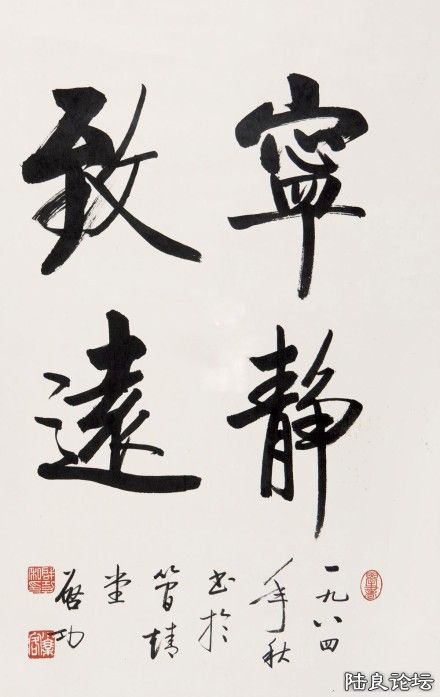 寧静
致遠
一九八四
年秋
书於
簡靖
堂
啓功
陆良论坛